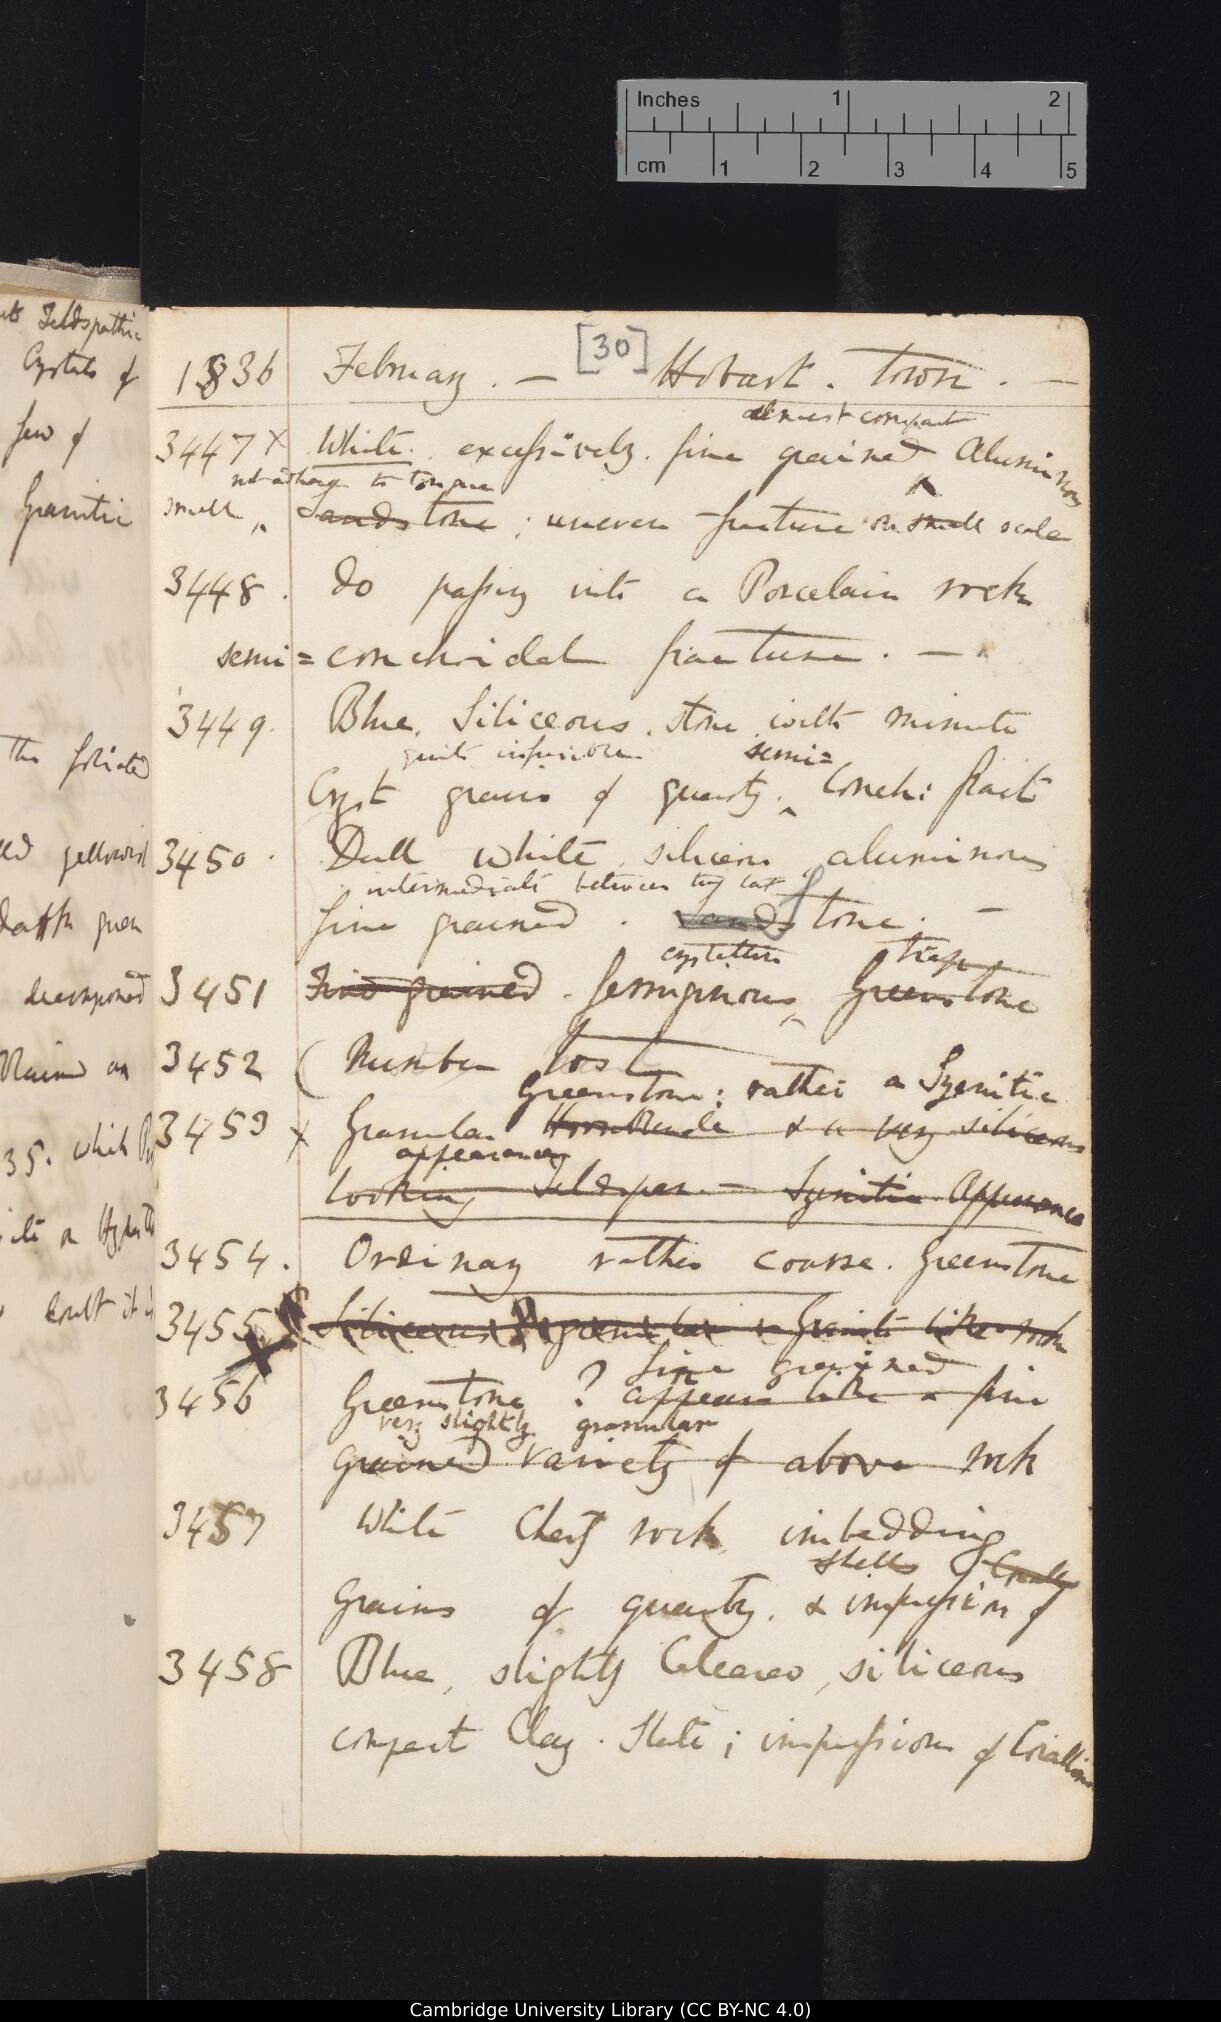 Inches 1 2
cm 1 2 3 4 5
[30]
1836 February. — Hobart. Town. —
almost compact
3447 X White. excessively. fine grained Aluminous
not adhering to tongue
smell Sandstone; uneven fracture on small scale
3448. do passing into a Porcelain rock
semi = conchoidal fracture. —
3449. Blue. Siliceous. stone with minute
quite infusible semi=
Cryst grains of quartz. Conch: fract
3450. Dull white. siliceo aluminous
intermediate between
fine grained. Sandstone. —
crystalline trap
3451 Fine grained. ferruginous Greenstone
3452 (Number lost
Greenstone: rather a Syenitic
3453 X Granular Hornblende & a very siliceous
appearance
looking Feldspar — Syenitic Appearance
3454. Ordinary rather coarse. Greenstone
3455 Siliceous granular Granite like rock
fine grained
3456 Greenstone ? appears like a fine
very slightly granular
grained variety of above rock
3457 White Cherty rock imbedding
shells Corall
Grains of quartz. & impression of
3458 Blue, slightly Calcareo, siliceous
compact Clay. Slate; impressions of Corallines
its Feldspathic
Crystals of
few of
Granitic
The foliated
decomposed
35. which
Cambridge University Library (CC BY-NC 4.0)